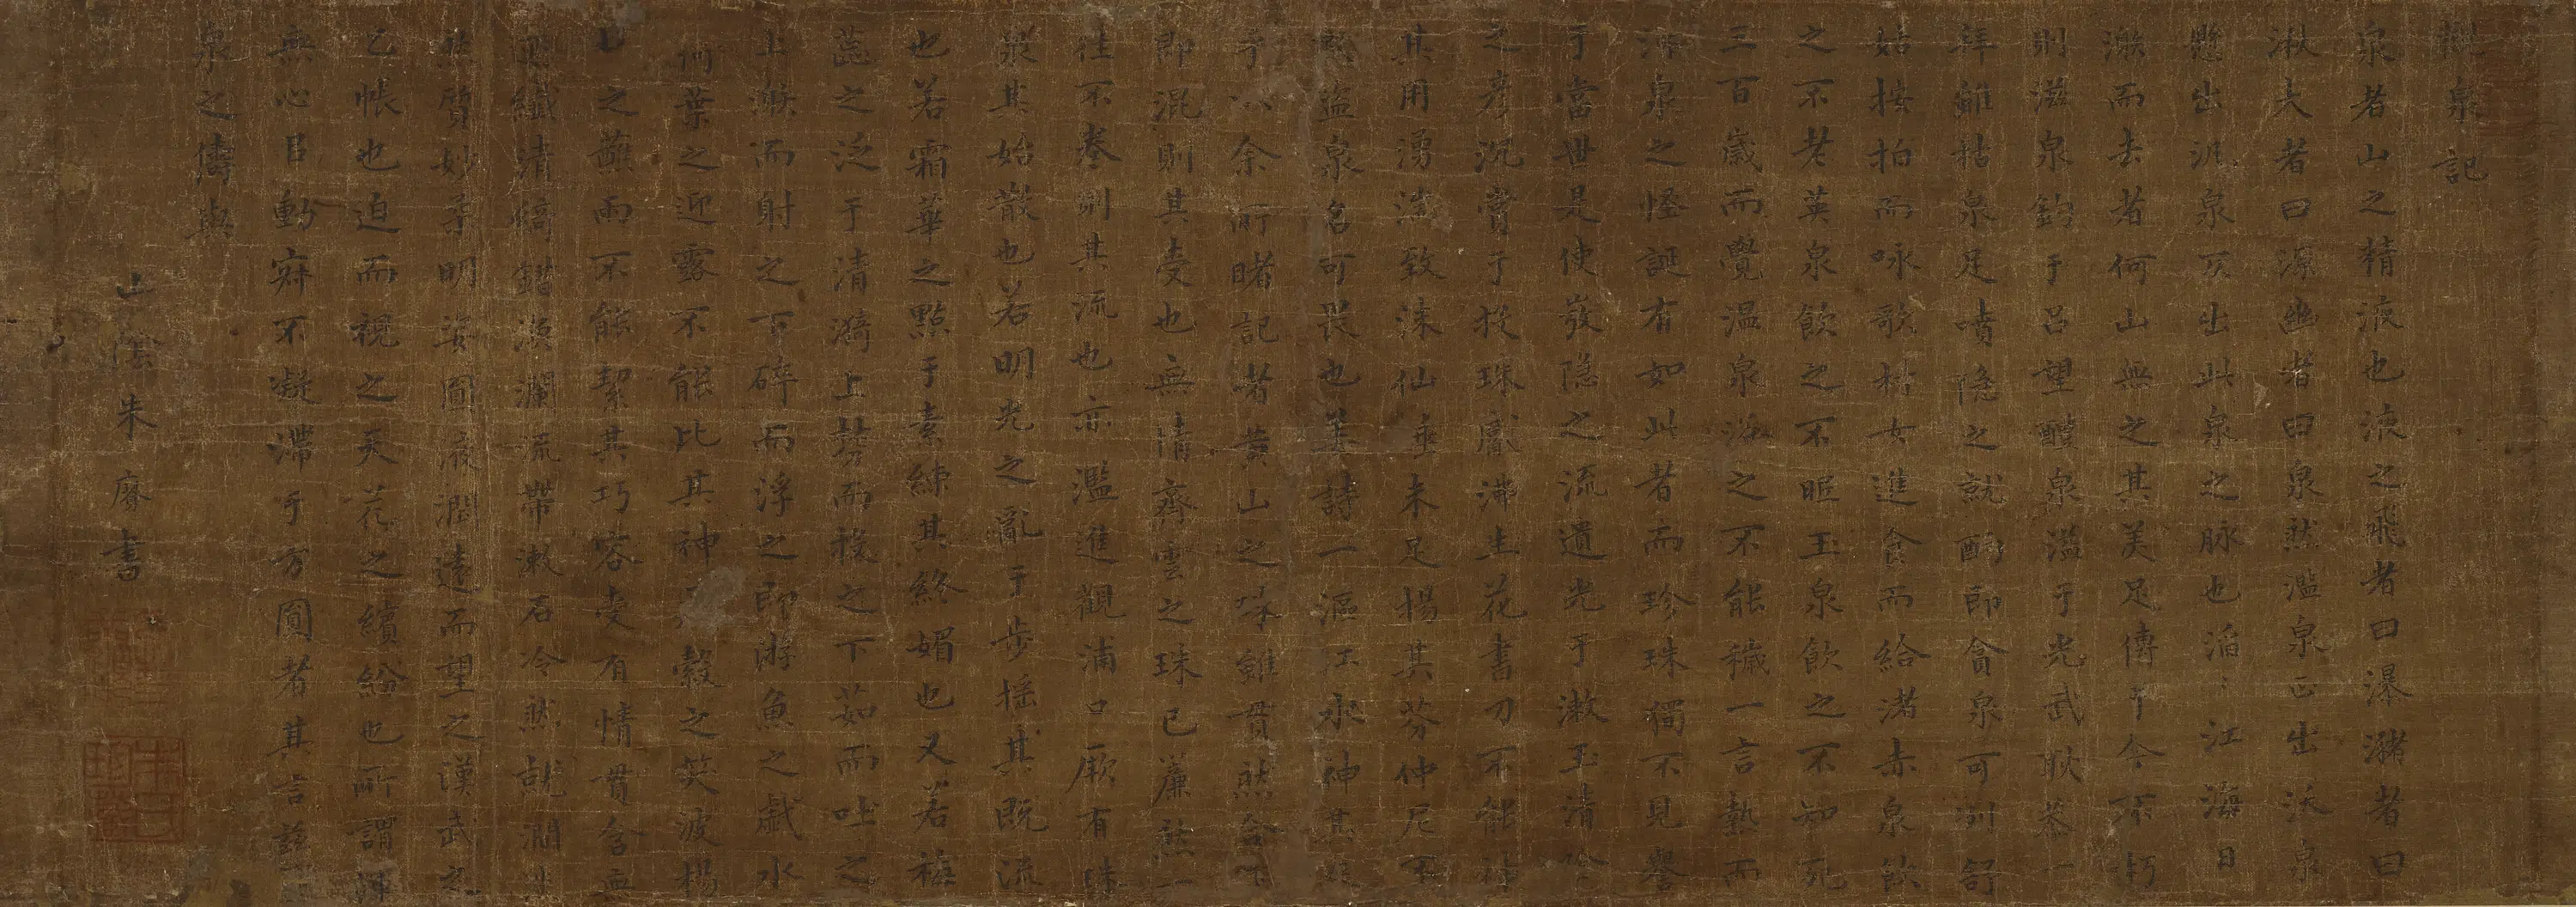 泉記
泉者山之精液也液之飛者曰瀑瀦者曰
湫大者曰源幽者曰泉然濫泉正出沃泉
懸出氿泉仄出此泉之脉也滔:江海日
漱而去者何山無之其美足傳于今不朽
則滋泉釣于呂望醴泉濫于光武耿恭一
拜雖枯泉足噴隐之就酌即貪泉可冽舒
姑按拍而咏歌村女進食而給渚赤泉飲
之不老英泉飲之不眠玉泉飲之不知死
三百歲而覺温泉浴之不能穢一言熱而
沸泉之怪誕有如此者而珍珠獨不見譽
于當世是使嵡隐之流遺光于漱玉清泠
之彦沉賞于投珠鳳沸生花書刀不能
其用湧湍致沫仙垂未足揚其芬仲尼不
盜泉名可畏也某詩一漚江水神其
乎以余所睹記者黃山之峰雖貫然含
即混則其變也無情齊雲之珠已簾然一
往不卷則其流也亦濫進觀浦口厥有珠
泉其始散也若明光之亂于步摇其既流
也若霜華之點于素練其終媚也又若
蕋之泛于清漪上旁而授之下茹而吐之
上漱而射之下碎而浮之即游魚之戯水
何葉之迎露不能比其神縠之笑波楊
之蘸雨不能絜其巧容變有情貫含
纖清綺錯漪瀾流帶漱石冷然就澗
質妙柔明姿圓液潤遠而望之漢武之
乙帳也迫而視之天花之繽紛也所謂
無心目動寂不凝滯于方圓者其言
泉之儔與
山陰朱賡書